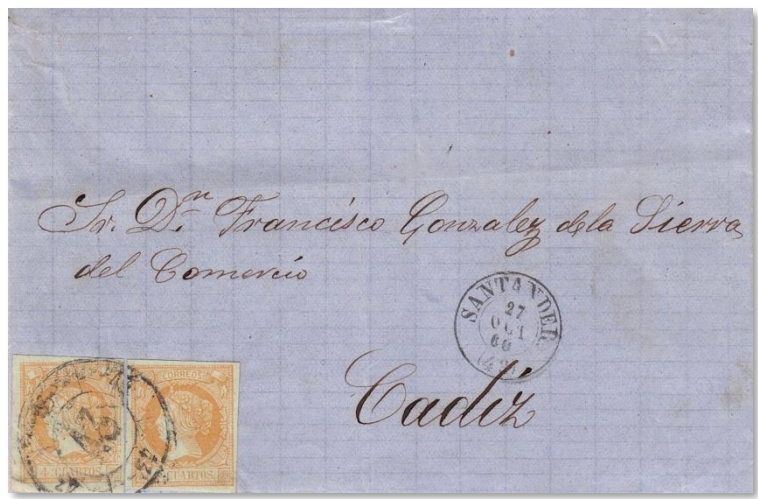 Sr. Dn. Francisco Gonzalez de la Sierra
del Comercio
SANTANDER
27
OCT
60
(42)
Cadiz
CORREOS
4 CUARTOS
CUARTOS